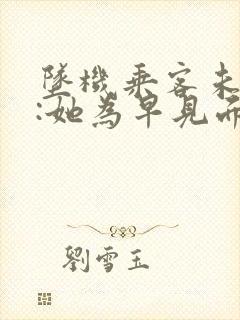 墜機乘客未
:她為早見
劉雪玉